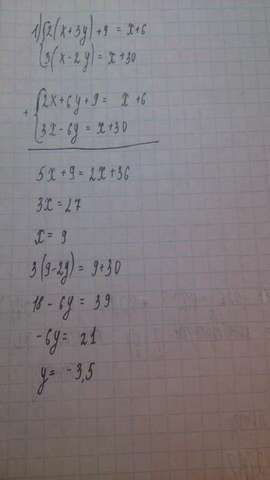 1) { 2(x+3y)+9 = x+6
3(x-2y) = x+30
+ { 2x+6y+9 = x+6
3x-6y = x+30
5x+9 = 2x+36
3x = 27
x = 9
3(9-2y) = 9+30
18-6y = 39
-6y = 21
y = -3,5